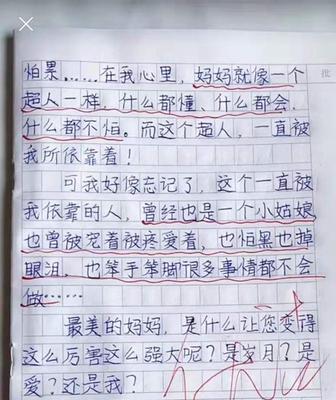 怕累……在我心里,妈妈就像一个
超人一样,什么都懂、什么都会,
什么都不怕。而这个超人,一直被
我所依靠着！
可我好像忘记了,这个一直被
我依靠的人,曾经也是一个小姑娘
也曾被宠着被疼爱着,也怕黑也掉
眼泪,也笨手笨脚很多事情都不会
做……
最美的妈妈,是什么让您变得
这么厉害这么强大呢？是岁月？是
爱？还是我？
批